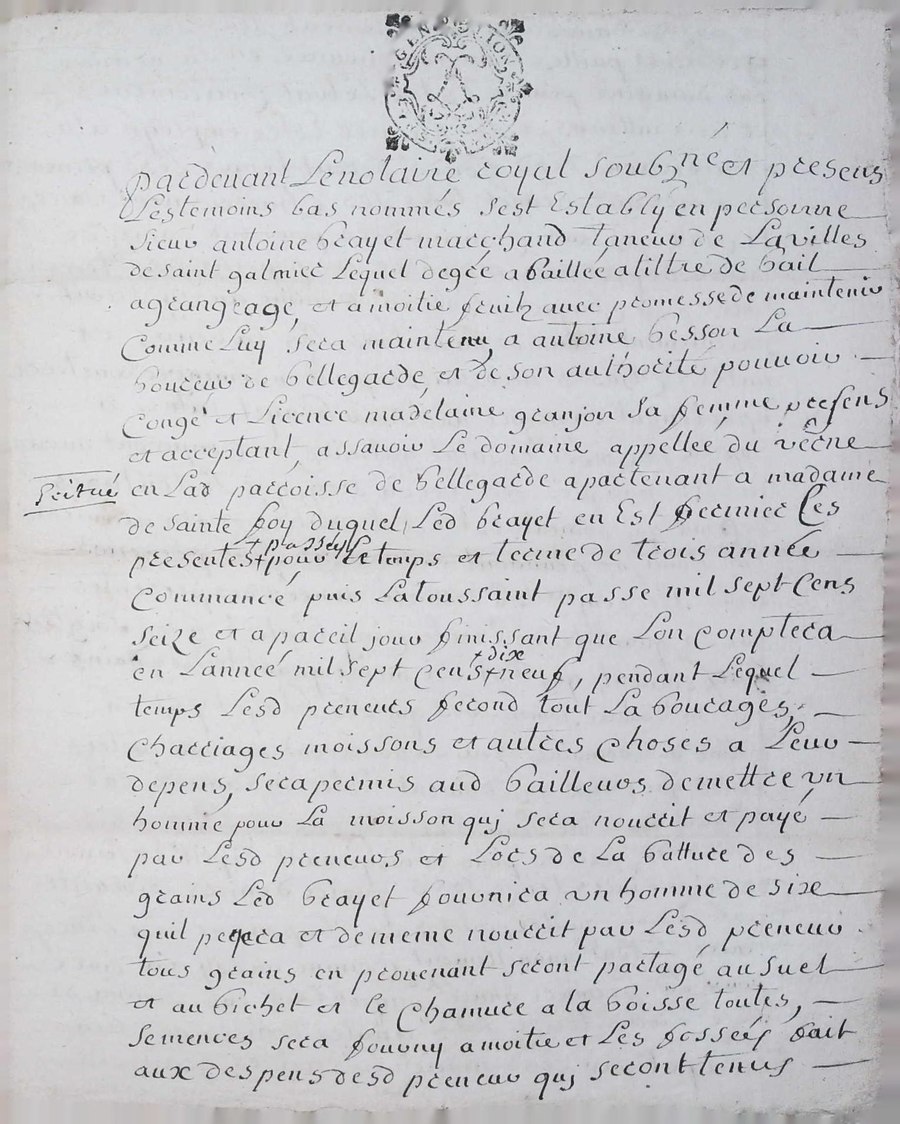 GEN TION
pardevant Lenotaire royal soubzne et presens
Lestemoins bas nommés sest Establÿ en personne
sieur antoine brayet marchand taneur de Lavilles
de saint galmier Lequel degré abaillée atiltre de bail
agrangeage, et amoitie fruitz avec promesse de maintenir
Comme Luy sera maintenu, a antoine besson La
boureur de bellegarde, et de son authorité pouvoir
Congé et Licence madelaine granjon sa femme presens
et acceptant, assavoir Le domaine appellée du verne
scitué
en Lad parroisse de bellegarde apartenant a madame
de sainte foy duquel Led brayet en Est fermier Les
+ passéés
presentes + pour Le temps et terme de trois année
Commancé puis Latoussaint passe mil sept Cens
seize et a pareil jour finissant que Lon comptera
+ dix
en Lanneé mil sept Cens + neuf, pendant Lequel
temps Lesd preneurs feront tout Labourages,
Charriages moissons et autres choses a Leur
depens, sera permis aud bailleurs demettre un
homme pour La moisson quj sera nourrit et payé
par Lesd preneurs et Lors de La batture des
grains Led brayet fournira un homme de sixe
quil payera et dememe nourrit par Lesd preneur
tous grains en provenant seront partagé au suel
et au bichet et le Chamure a la boisse toutes,
semences sera fourny amoitie et Les fosséés fait
aux despens desd preneur quj seront tenus